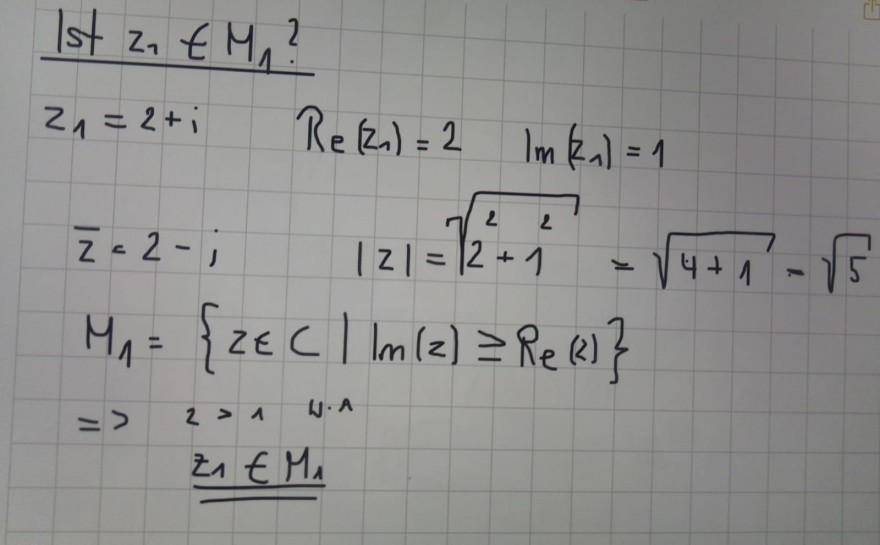 Ist z₁ ∈ M₁?
z₁ = 2 + i Re(z₁) = 2 Im(z₁) = 1
z̅ = 2 - i |z| = √(2² + 1²) = √(4 + 1) = √5
M₁ = {z ∈ C | Im(z) ≥ Re(z)}
=> 2 > 1 W.A
z₁ ∈ M₁